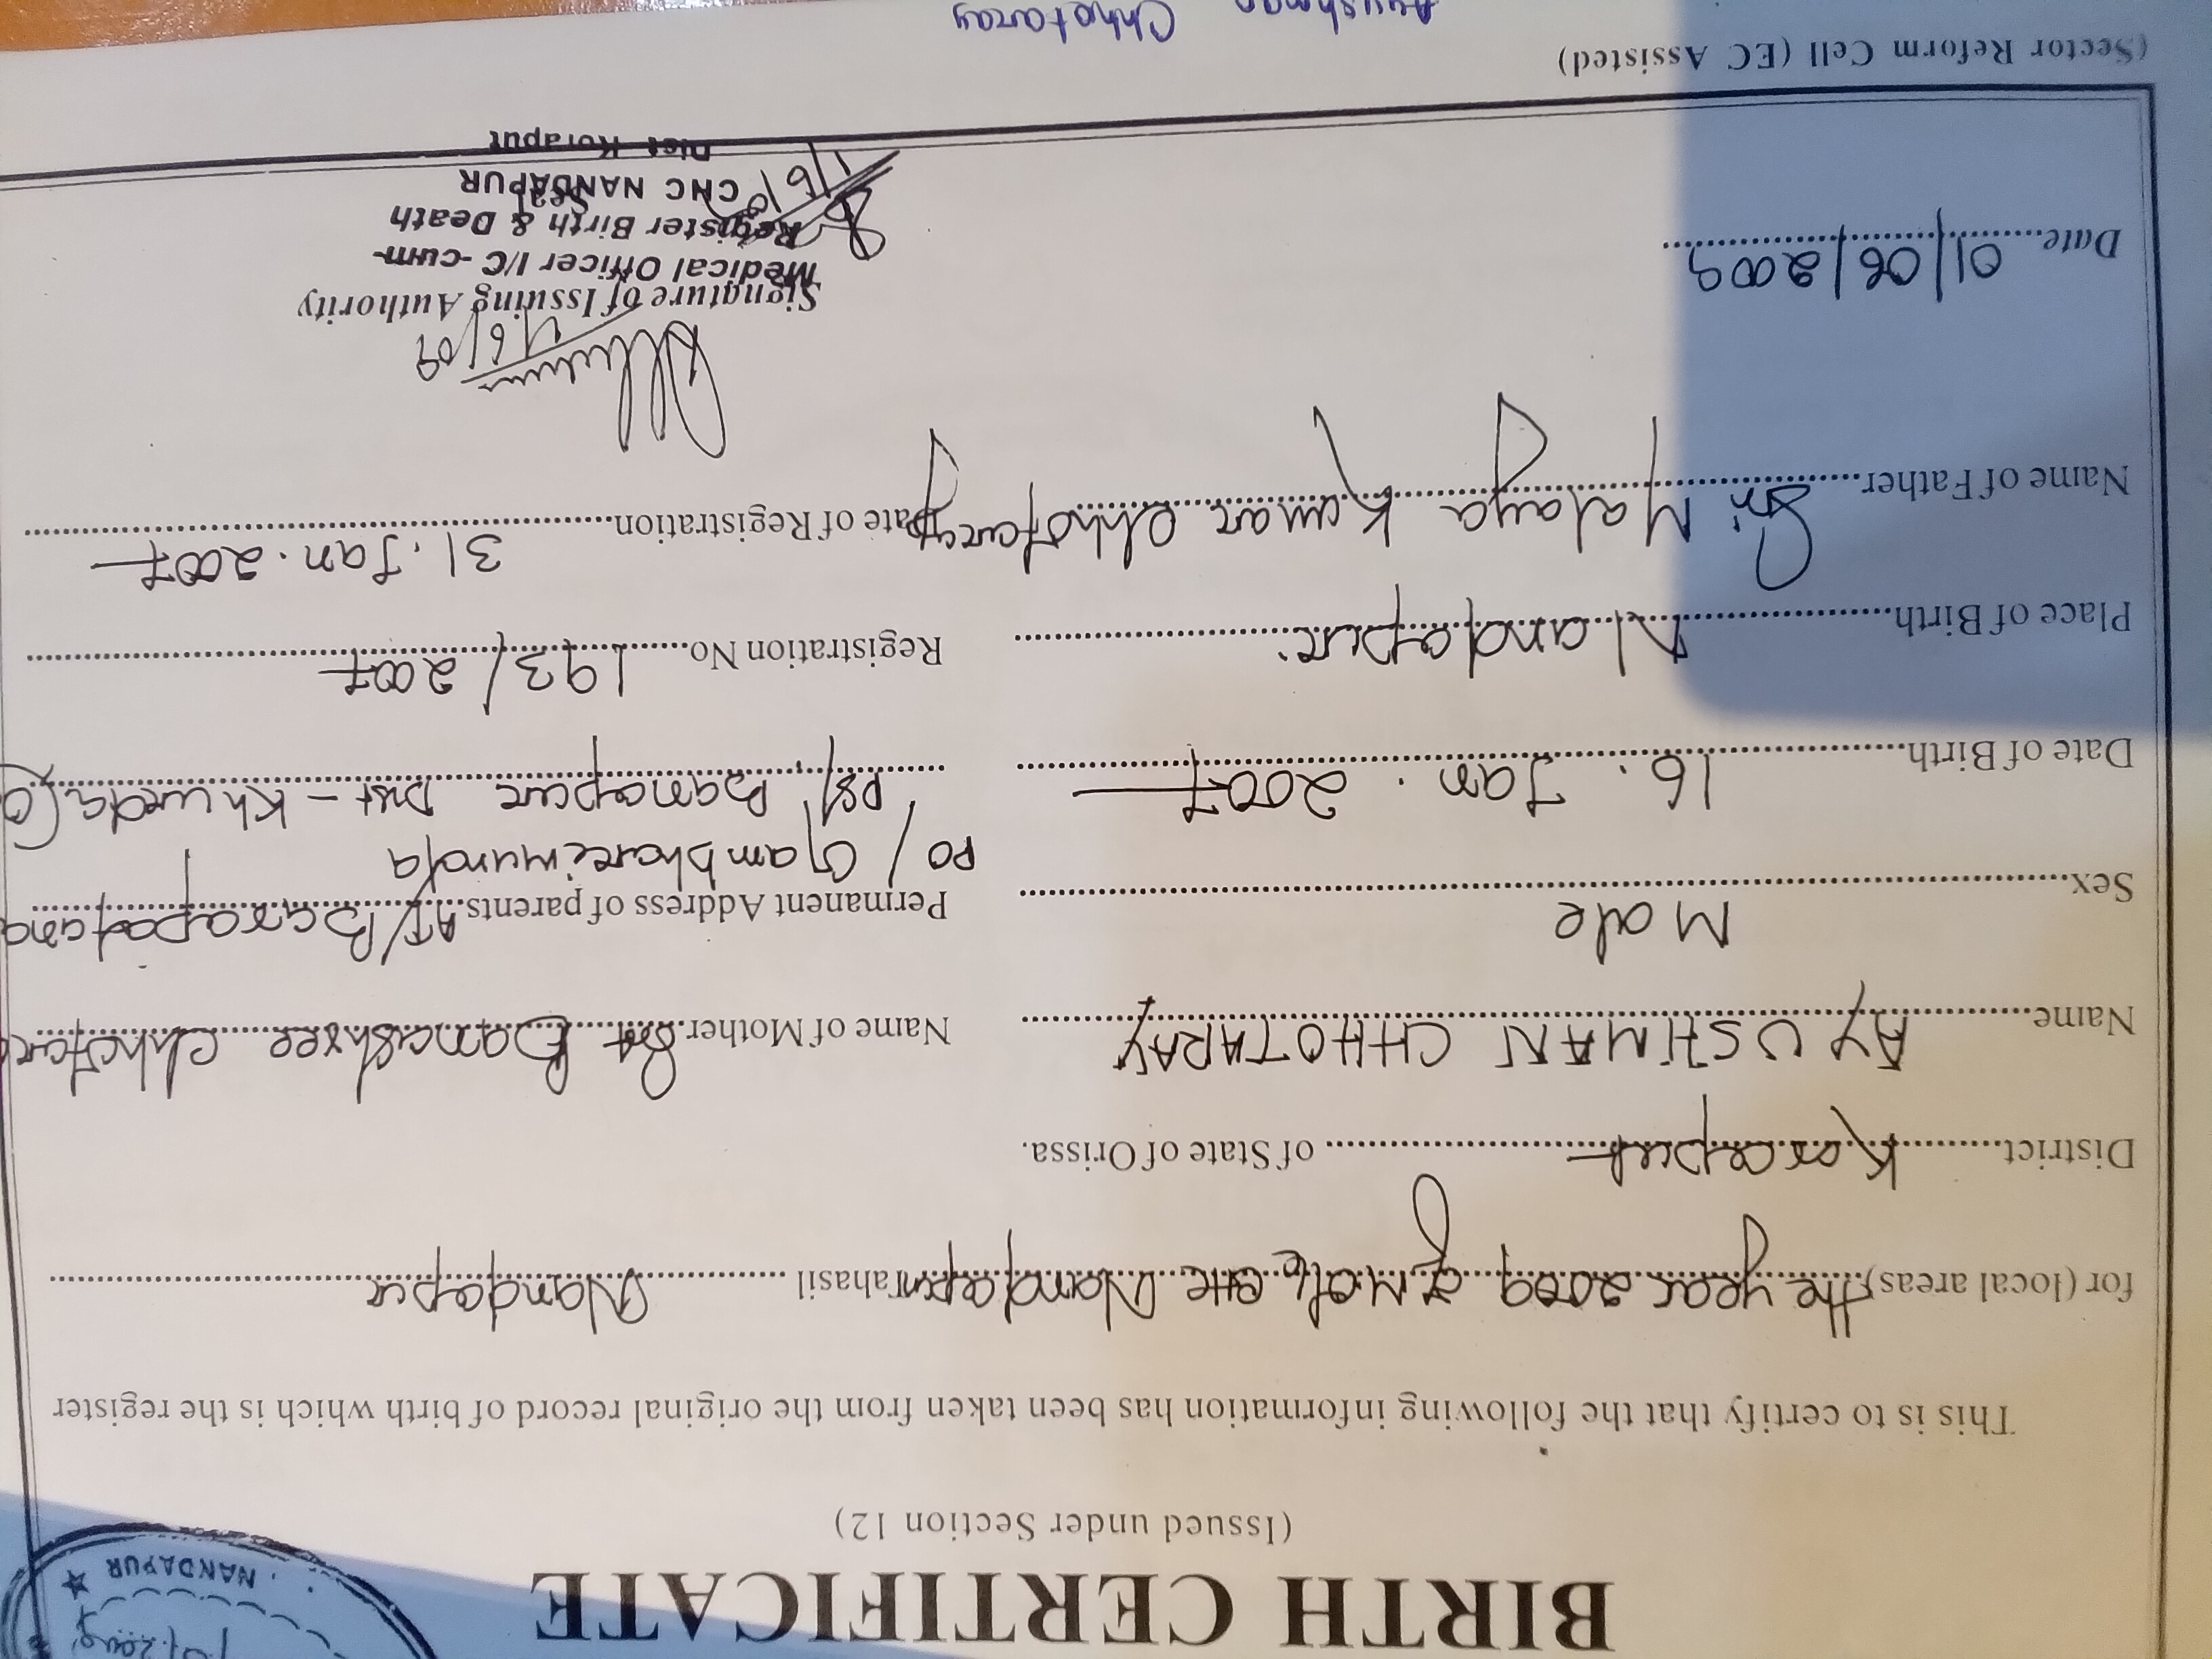 NANDAPUR
BIRTH CERTIFICATE
(Issued under Section 12)
This is to certify that the following information has been taken from the original record of birth which is the register
for (local areas) the year 2009 of Nandapur Tahasil Nandapur
District Koraput of State of Orissa.
Name AYUSHMAN CHHOTARAY
Name of Mother Banashree
Sex Male
Permanent Address of parents AT/
PO/
Date of Birth 16. Jan. 2007
PS/ Banapur Dist - Khurda (O
Place of Birth Nandapur.
Registration No 193/2007
Name of Father Sri Malaya Kumar Chhotaray
Date of Registration 31. Jan. 2007
1/6/09
Signature of Issuing Authority
Date 01/06/2009
Medical Officer I/C -cum-
Register Birth & Death
Seal
CHC NANDAPUR
Dist Koraput
(Sector Reform Cell (EC Assisted)
Ayushman Chhotaray